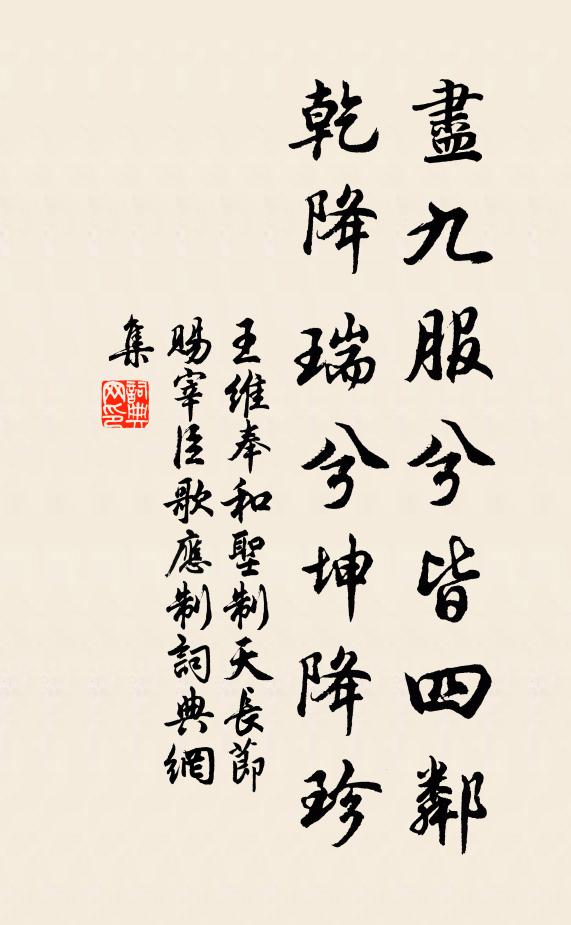 盡九服兮皆四鄰
乾降瑞兮坤降珍
王維奉和聖制天長節
賜宰臣歌應制詞典網
集
詞典網印